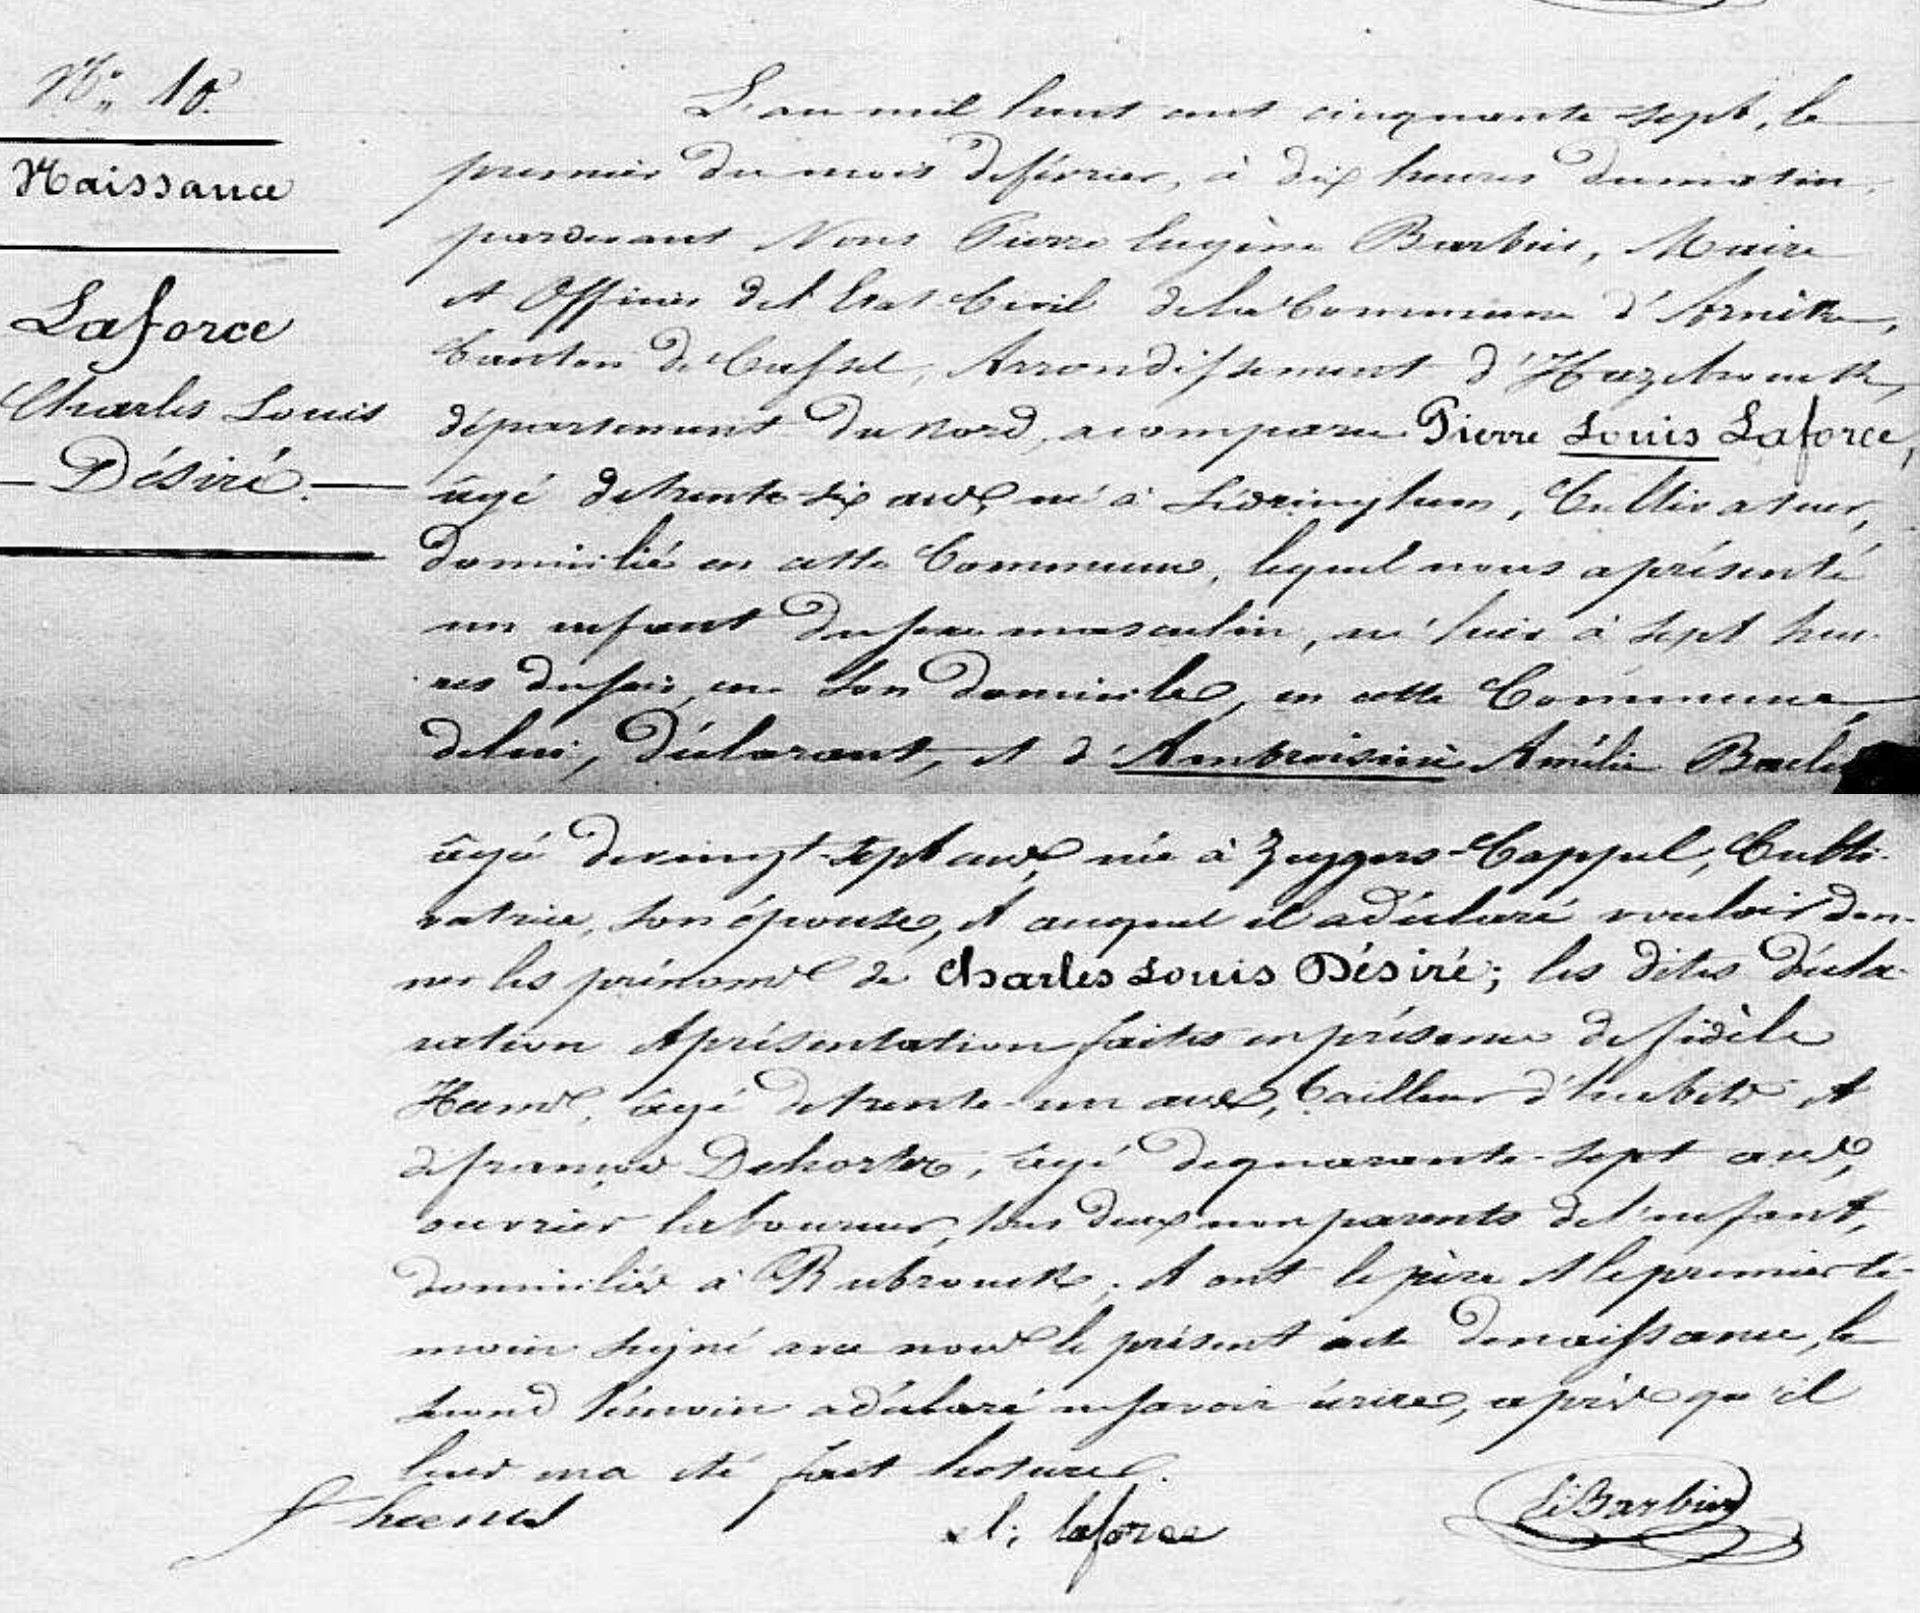 N° 10.
Naissance
Laforce
Charles Louis
Désiré.
L'an mil huit cent cinquante-sept, le
premier du mois de février, à dix heures du matin,
pardevant Nous Pierre Eugène Barbier, Maire
et Officier de l'Etat-Civil de la Commune d'Arnèke,
Canton de Cassel, Arrondissement d'Hazebrouck,
département du Nord, a comparu Pierre Louis Laforce,
âgé de trente-six ans, né à Lédringhem, Cultivateur,
domicilié en cette Commune, lequel nous a présenté
un enfant du sexe masculin, né hier à sept heu-
res du soir, en son domicile, en cette Commune,
de lui, déclarant, et d'Ambroisine Amélie
âgée de vingt-sept ans, née à Zeggers-Cappel, Culti-
vatrice, son épouse, et auquel il a déclaré vouloir don-
ner les prénoms de Charles Louis Désiré; les dites décla-
ration et présentation faites en présence de fidèle
Hams, âgé de trente-un ans, tailleur d'habits et
de françois Dehorter, âgé de quarante-sept ans,
ouvrier laboureur, tous deux non parents de l'enfant,
domiciliés à Rubrouck; et ont le père et le premier té-
moin signé avec nous le présent acte de naissance, le
second témoin a déclaré ne savoir écrire, après qu'il
leur en a été fait lecture.
l. laforce